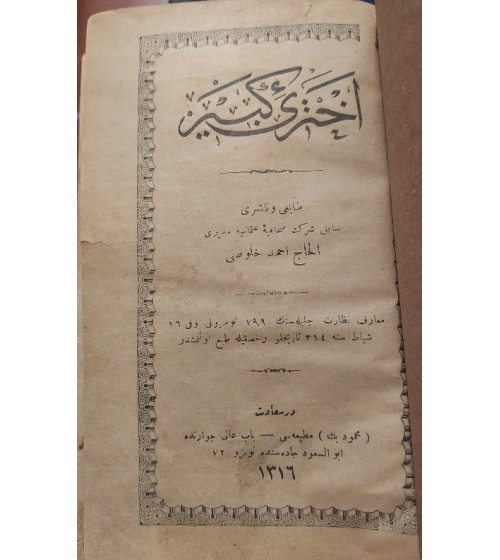 اخترئ كبير
طابعی و ناشری
سابق شركت صحافیهٔ عثمانیه مدیری
الحاج احمد خلوصی
معارف نظارت جلیله‌سنك ٧٩٩ نومرولی و فی ١٦
شباط سنه ٣١٤ تاریخلو رخصتیله طبع اولنمشدر
در سعادت
( محمود بك ) مطبعه‌سی — باب عالی جوارنده
ابو السعود جاده‌سنده نومرو ٧٢
١٣١٦